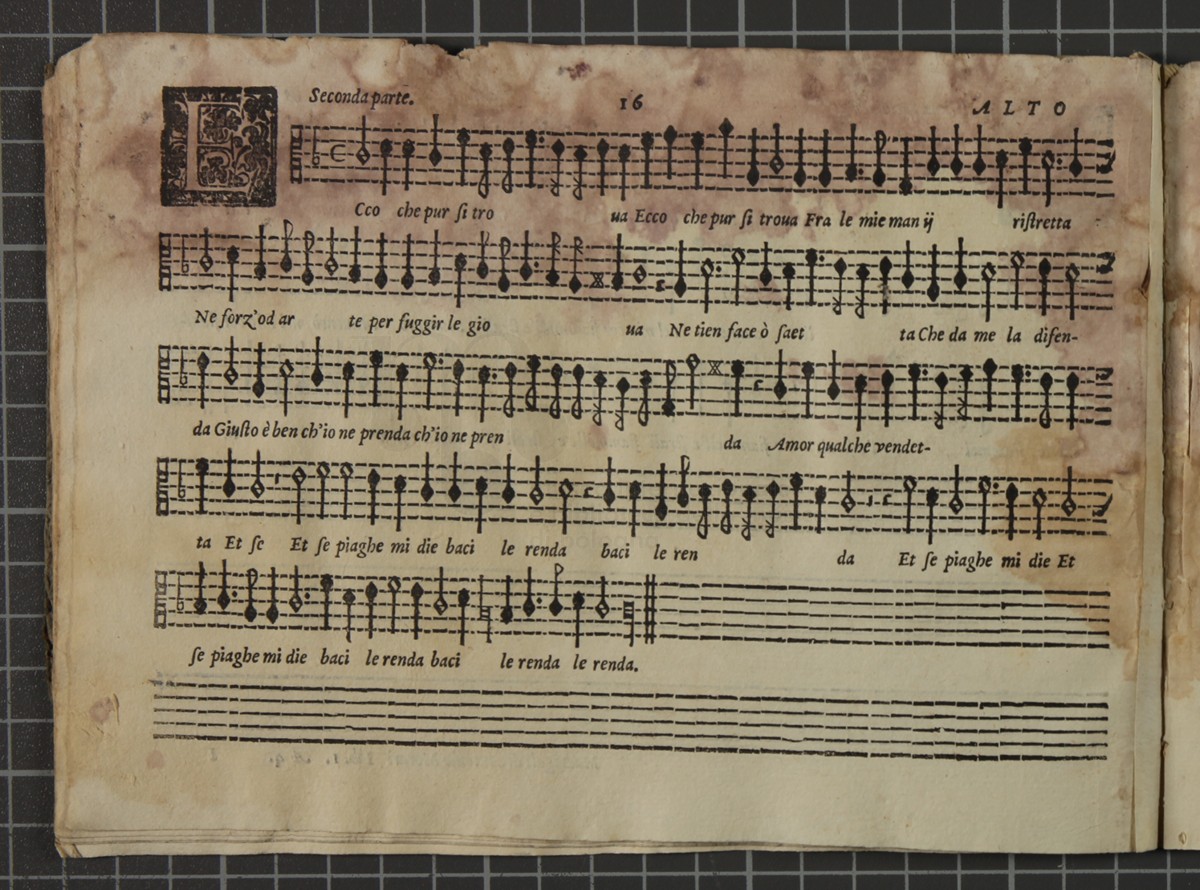 Seconda parte. 16 ALTO
E
Cco che pur ſi tro ua Ecco che pur ſi troua Fra le mie man ij riſtretta
Ne forz'od ar te per fuggir le gio ua Ne tien face ò ſaet ta Che da me la difen-
da Giuſto è ben ch'io ne prenda ch'io ne pren da Amor qualche vendet-
ta Et ſe Et ſe piaghe mi die baci le renda baci le ren da Et ſe piaghe mi die Et
ſe piaghe mi die baci le renda baci le renda le renda.